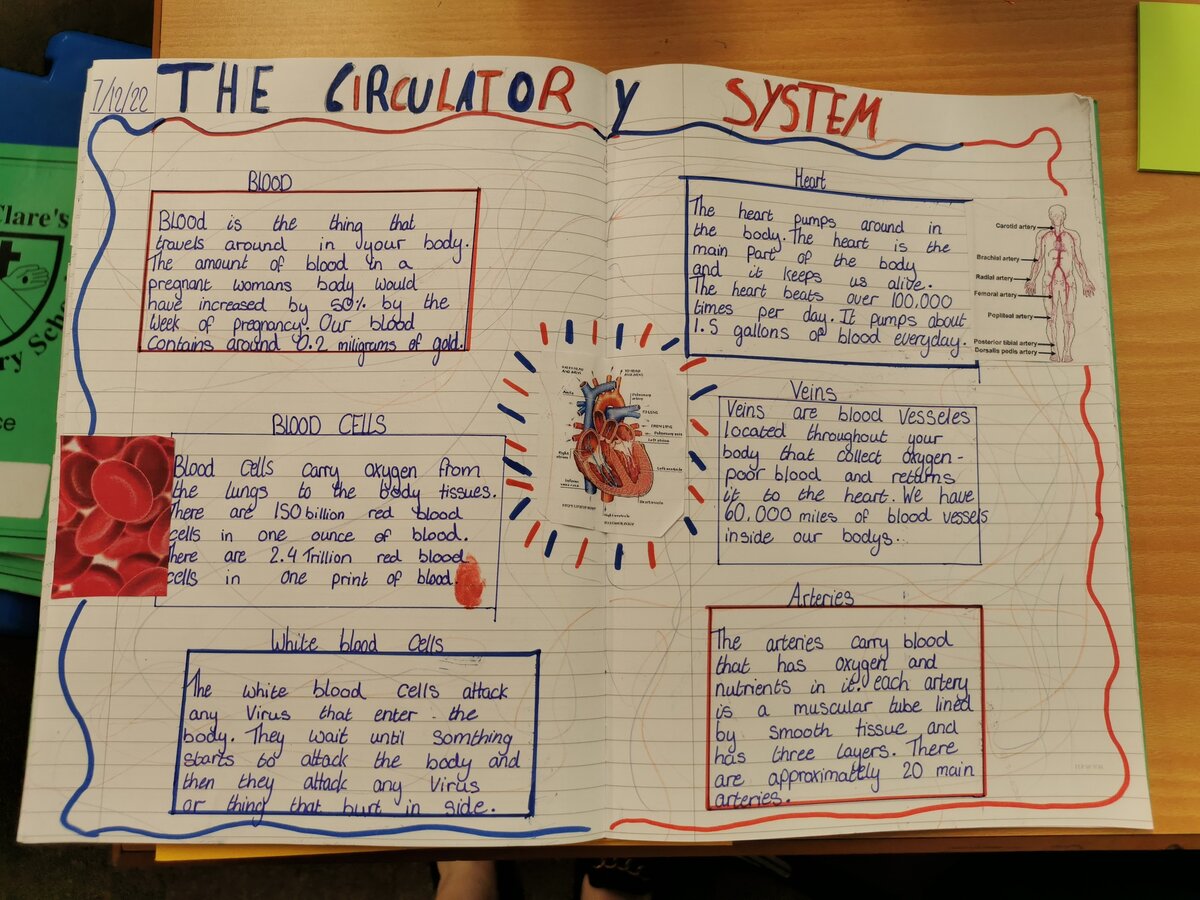 7/12/22 THE CIRCULATORY SYSTEM
BLOOD
BLOOD is the thing that
travels around in your body.
The amount of blood in a
pregnant womans body would
have increased by 50% by the
Week of pregnancy. Our blood
contains around 0.2 miligrams of gold.
BLOOD CELLS
Blood cells carry oxygen from
the lungs to the body tissues.
There are 150 billion red blood
cells in one ounce of blood.
There are 2.4 Trillion red blood
cells in one print of blood.
White blood cells
The white blood cells attack
any Virus that enter the
body. They wait until somthing
starts to attack the body and
then they attack any Virus
or thing that burt in side.
Heart
The heart pumps around in
the body. The heart is the
main part of the body
and it keeps us alive.
The heart beats over 100.000
times per day. It pumps about
1.5 gallons of blood everyday.
Carotid artery
Brachial artery
Radial artery
Femoral artery
Popliteal artery
Posterior tibial artery
Dorsalis pedis artery
Veins
Veins are blood vesseles
located throughout your
body that collect oxygen-
poor blood and returns
it to the heart. We have
60.000 miles of blood vessels
inside our bodys..
Arteries
The arteries carry blood
that has oxygen and
nutrients in it. each artery
is a muscular tube lined
by smooth tissue and
has three layers. There
are approximately 20 main
arteries.
Clare's